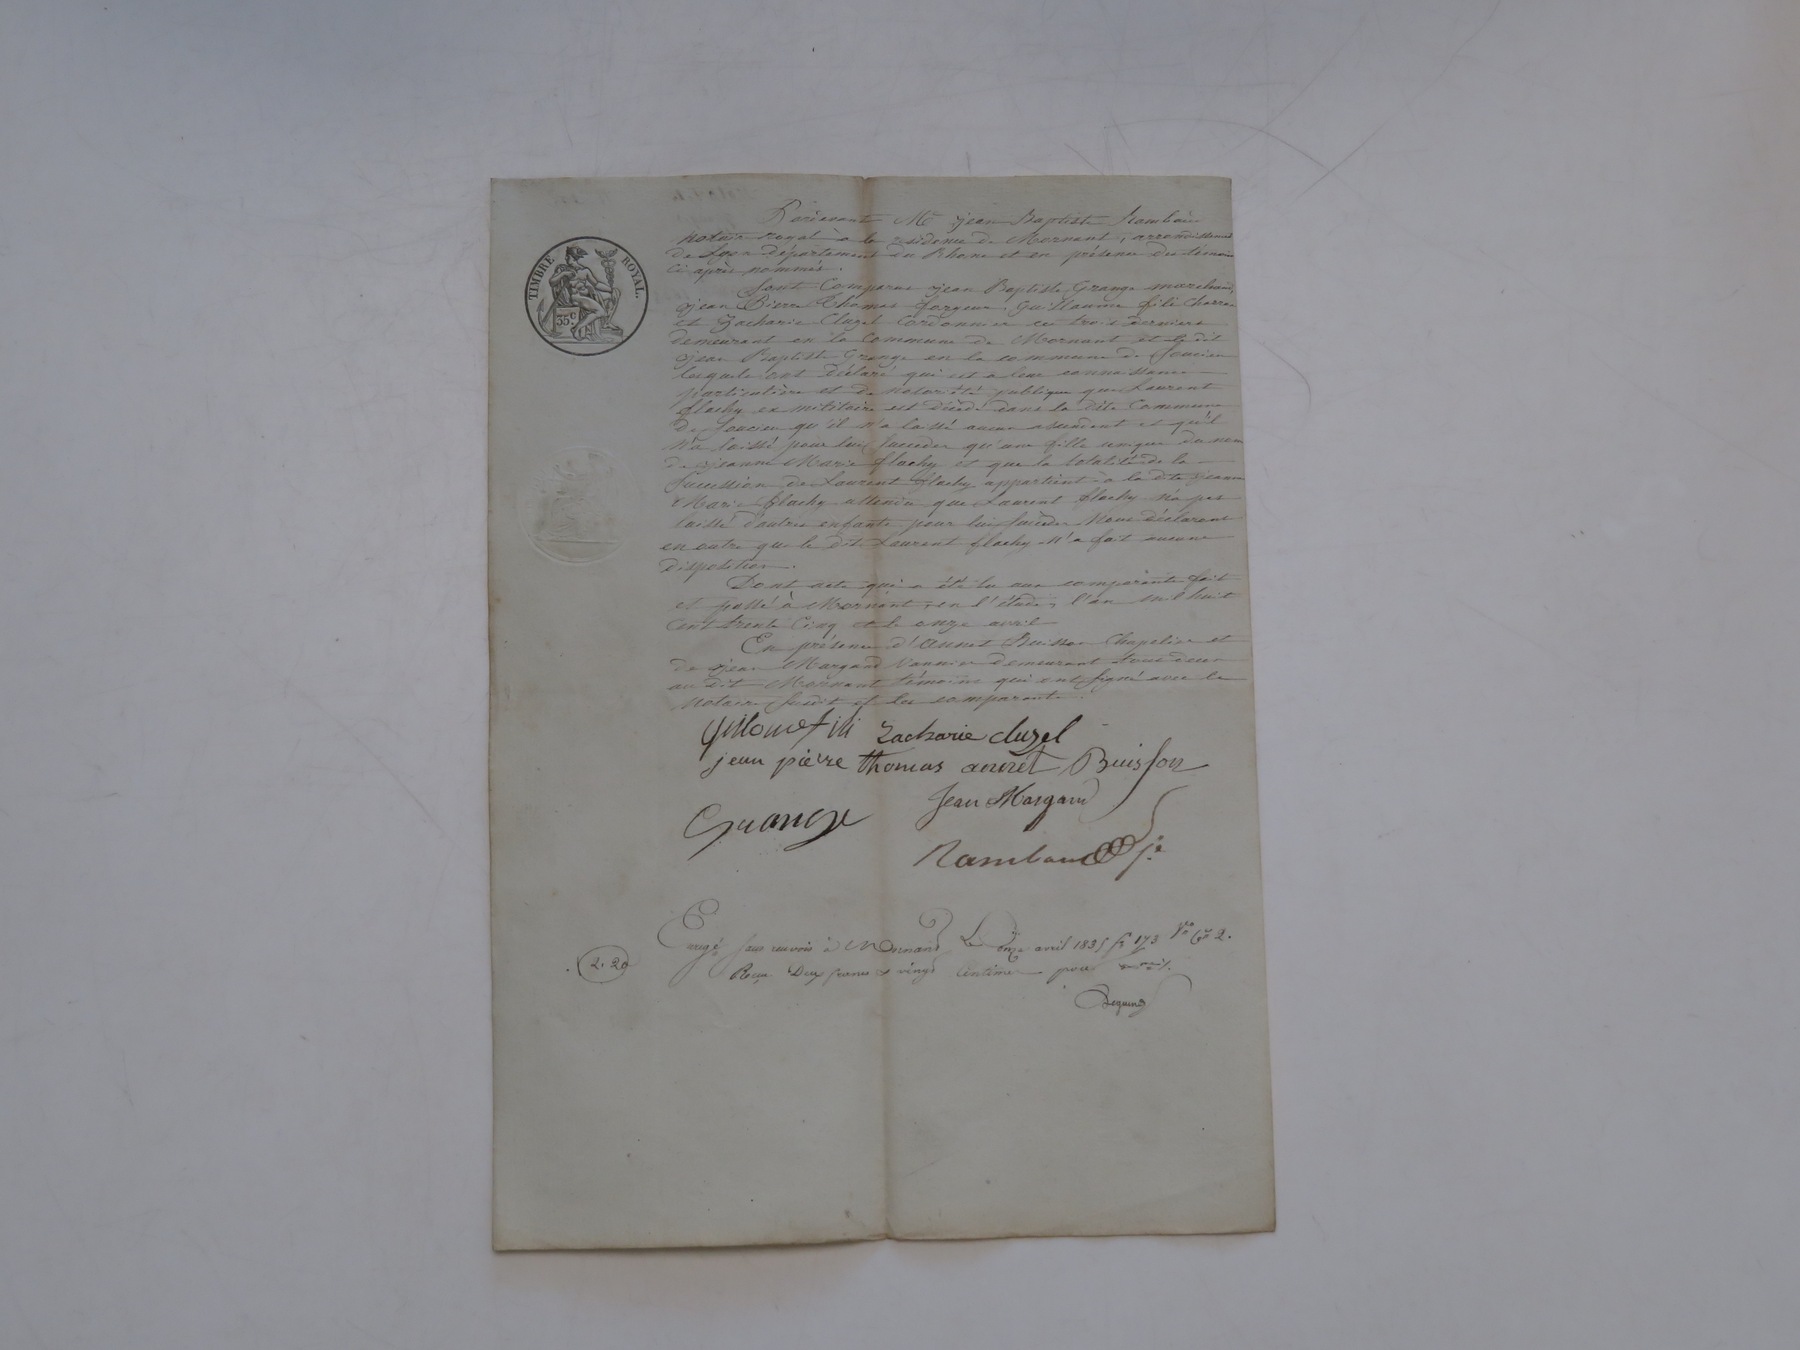 TIMBRE ROYAL.
35 c
Pardevant Me jean Baptiste Rambaud
notaire royal à la résidence de Mornant, arrondissement
de Lyon département du Rhone et en présence des témoins
ci après nommés.
Sont Comparus jean Baptiste Grange marchand,
jean Pierre Thomas forgeur, Guillaume fili Charron
et Zacharie Cluzel Cordonnier ces trois derniers
demeurant en la Commune de Mornant et le dit
jean Baptiste Grange en la commune de Soucieu
lesquels ont déclaré qui est a leur connaissance
particulière et de notoriété publique que Laurent
flachy ex militaire est décédé dans la dite Commune
de Soucieu qu'il n'a laissé aucun assendant et qu'il
n'a laissé pour lui succeder qu'une fille unique du nom
de jeanne Marie flachy et que la totalité de la
succession de Laurent flachy appartient à la dite jeanne
Marie flachy attendu que Laurent flachy n'a pas
laissé d'autres enfants pour lui succèder Nous déclarons
en outre que le dit Laurent flachy n'a fait aucune
disposition.
Dont acte qui a été lu aux comparants fait
et passé à Mornant, en l'étude, l'an mil huit
cent trente Cinq et le onze avril
En présence d'Annet Buisson Chapelier et
de jean Margand Vannier demeurant tous deux
au dit Mornant témoins qui ont signé avec le
notaire susdit et les comparants.
Zacharie cluzel
jean pièrre thomas annet Buisson
Jean Margand
Grange
Rambaud
2.20
sans renvois à Mornant Le onze avril 1835 fo 173 Vo Ce 2.
Reçu Deux francs & vingt Centimes pour